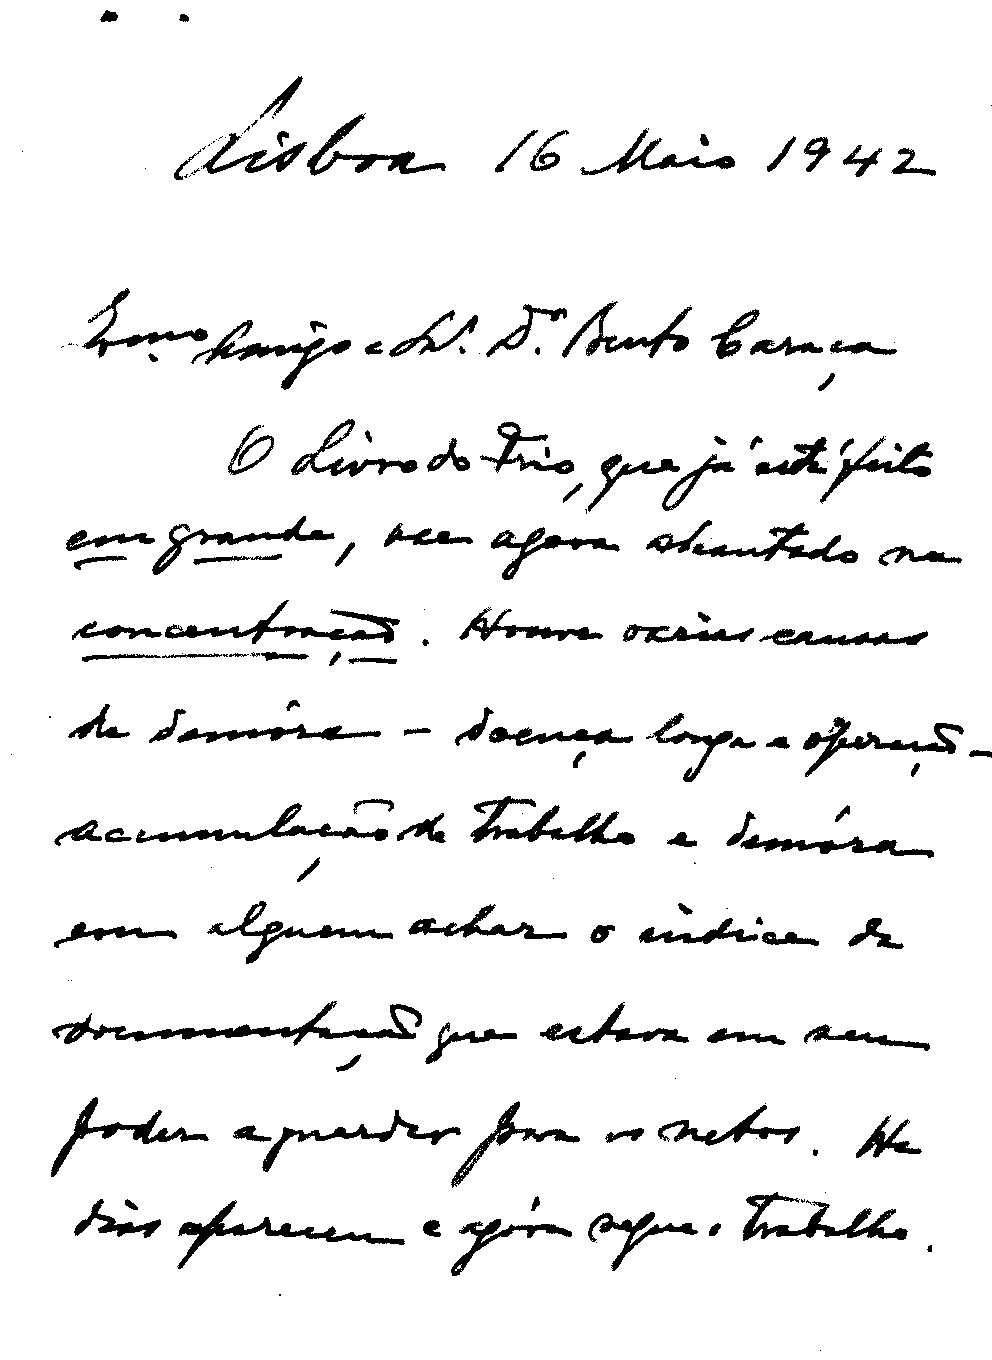 Lisboa 16 Maio 1942
Exmo. Amigo e Sr. Dor. Bento Caraça
O Livro do Frio, que já está feito
em grande, vae agora adeantado na
concentração. Houve varias causas
de demóra – doença longa e operação –
acumulação de trabalho e demóra
em alguem achar o indice da
documentação que estava em seu
poder a guardar para os netos. Ha
dias apareceu e agóra segue o trabalho.